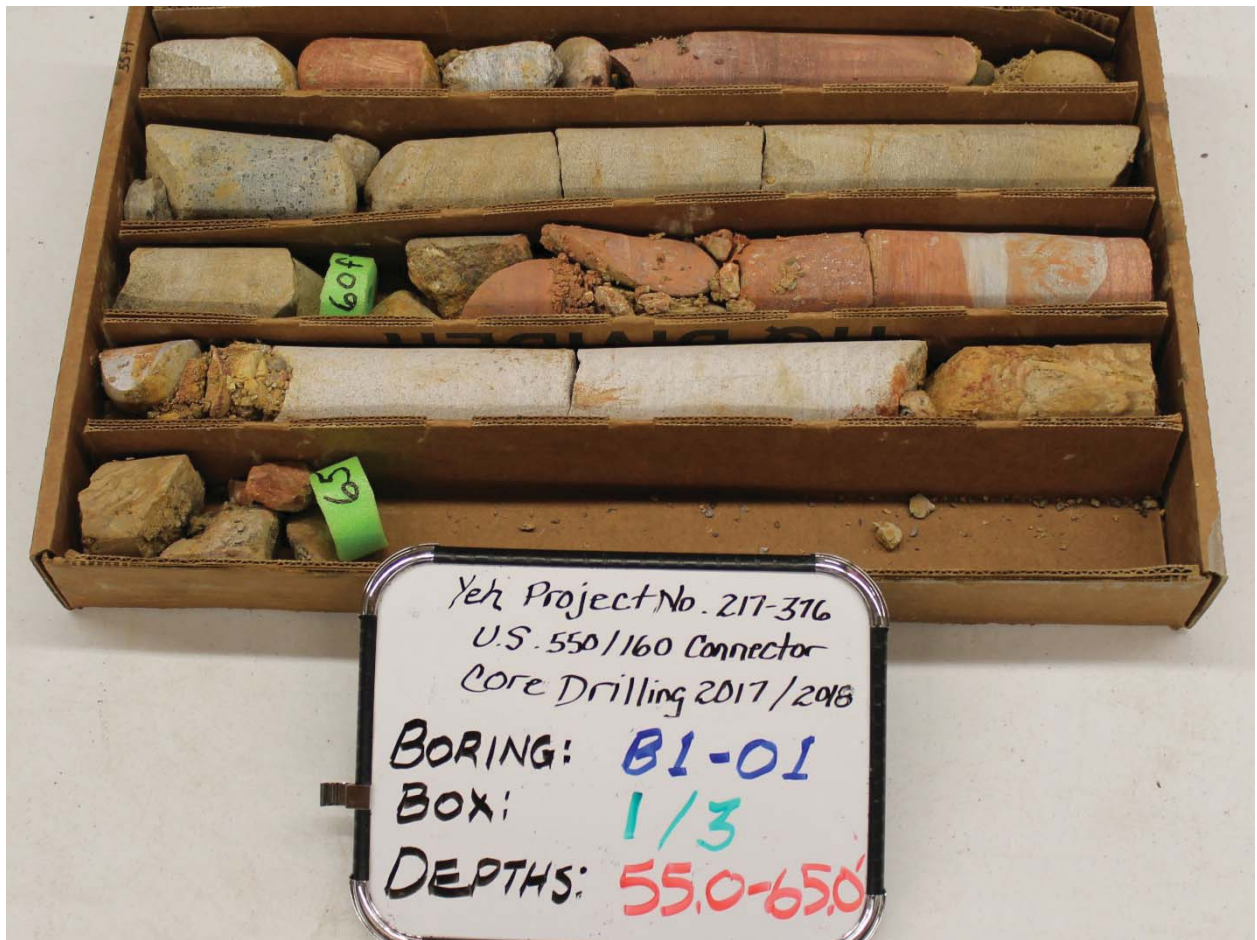 55ft
60ft
HQ DIVIDER
65
Yeh Project No. 217-376
U.S. 550/160 Connector
Core Drilling 2017/2018
BORING: B1-01
BOX: 1/3
DEPTHS: 55.0-65.0'